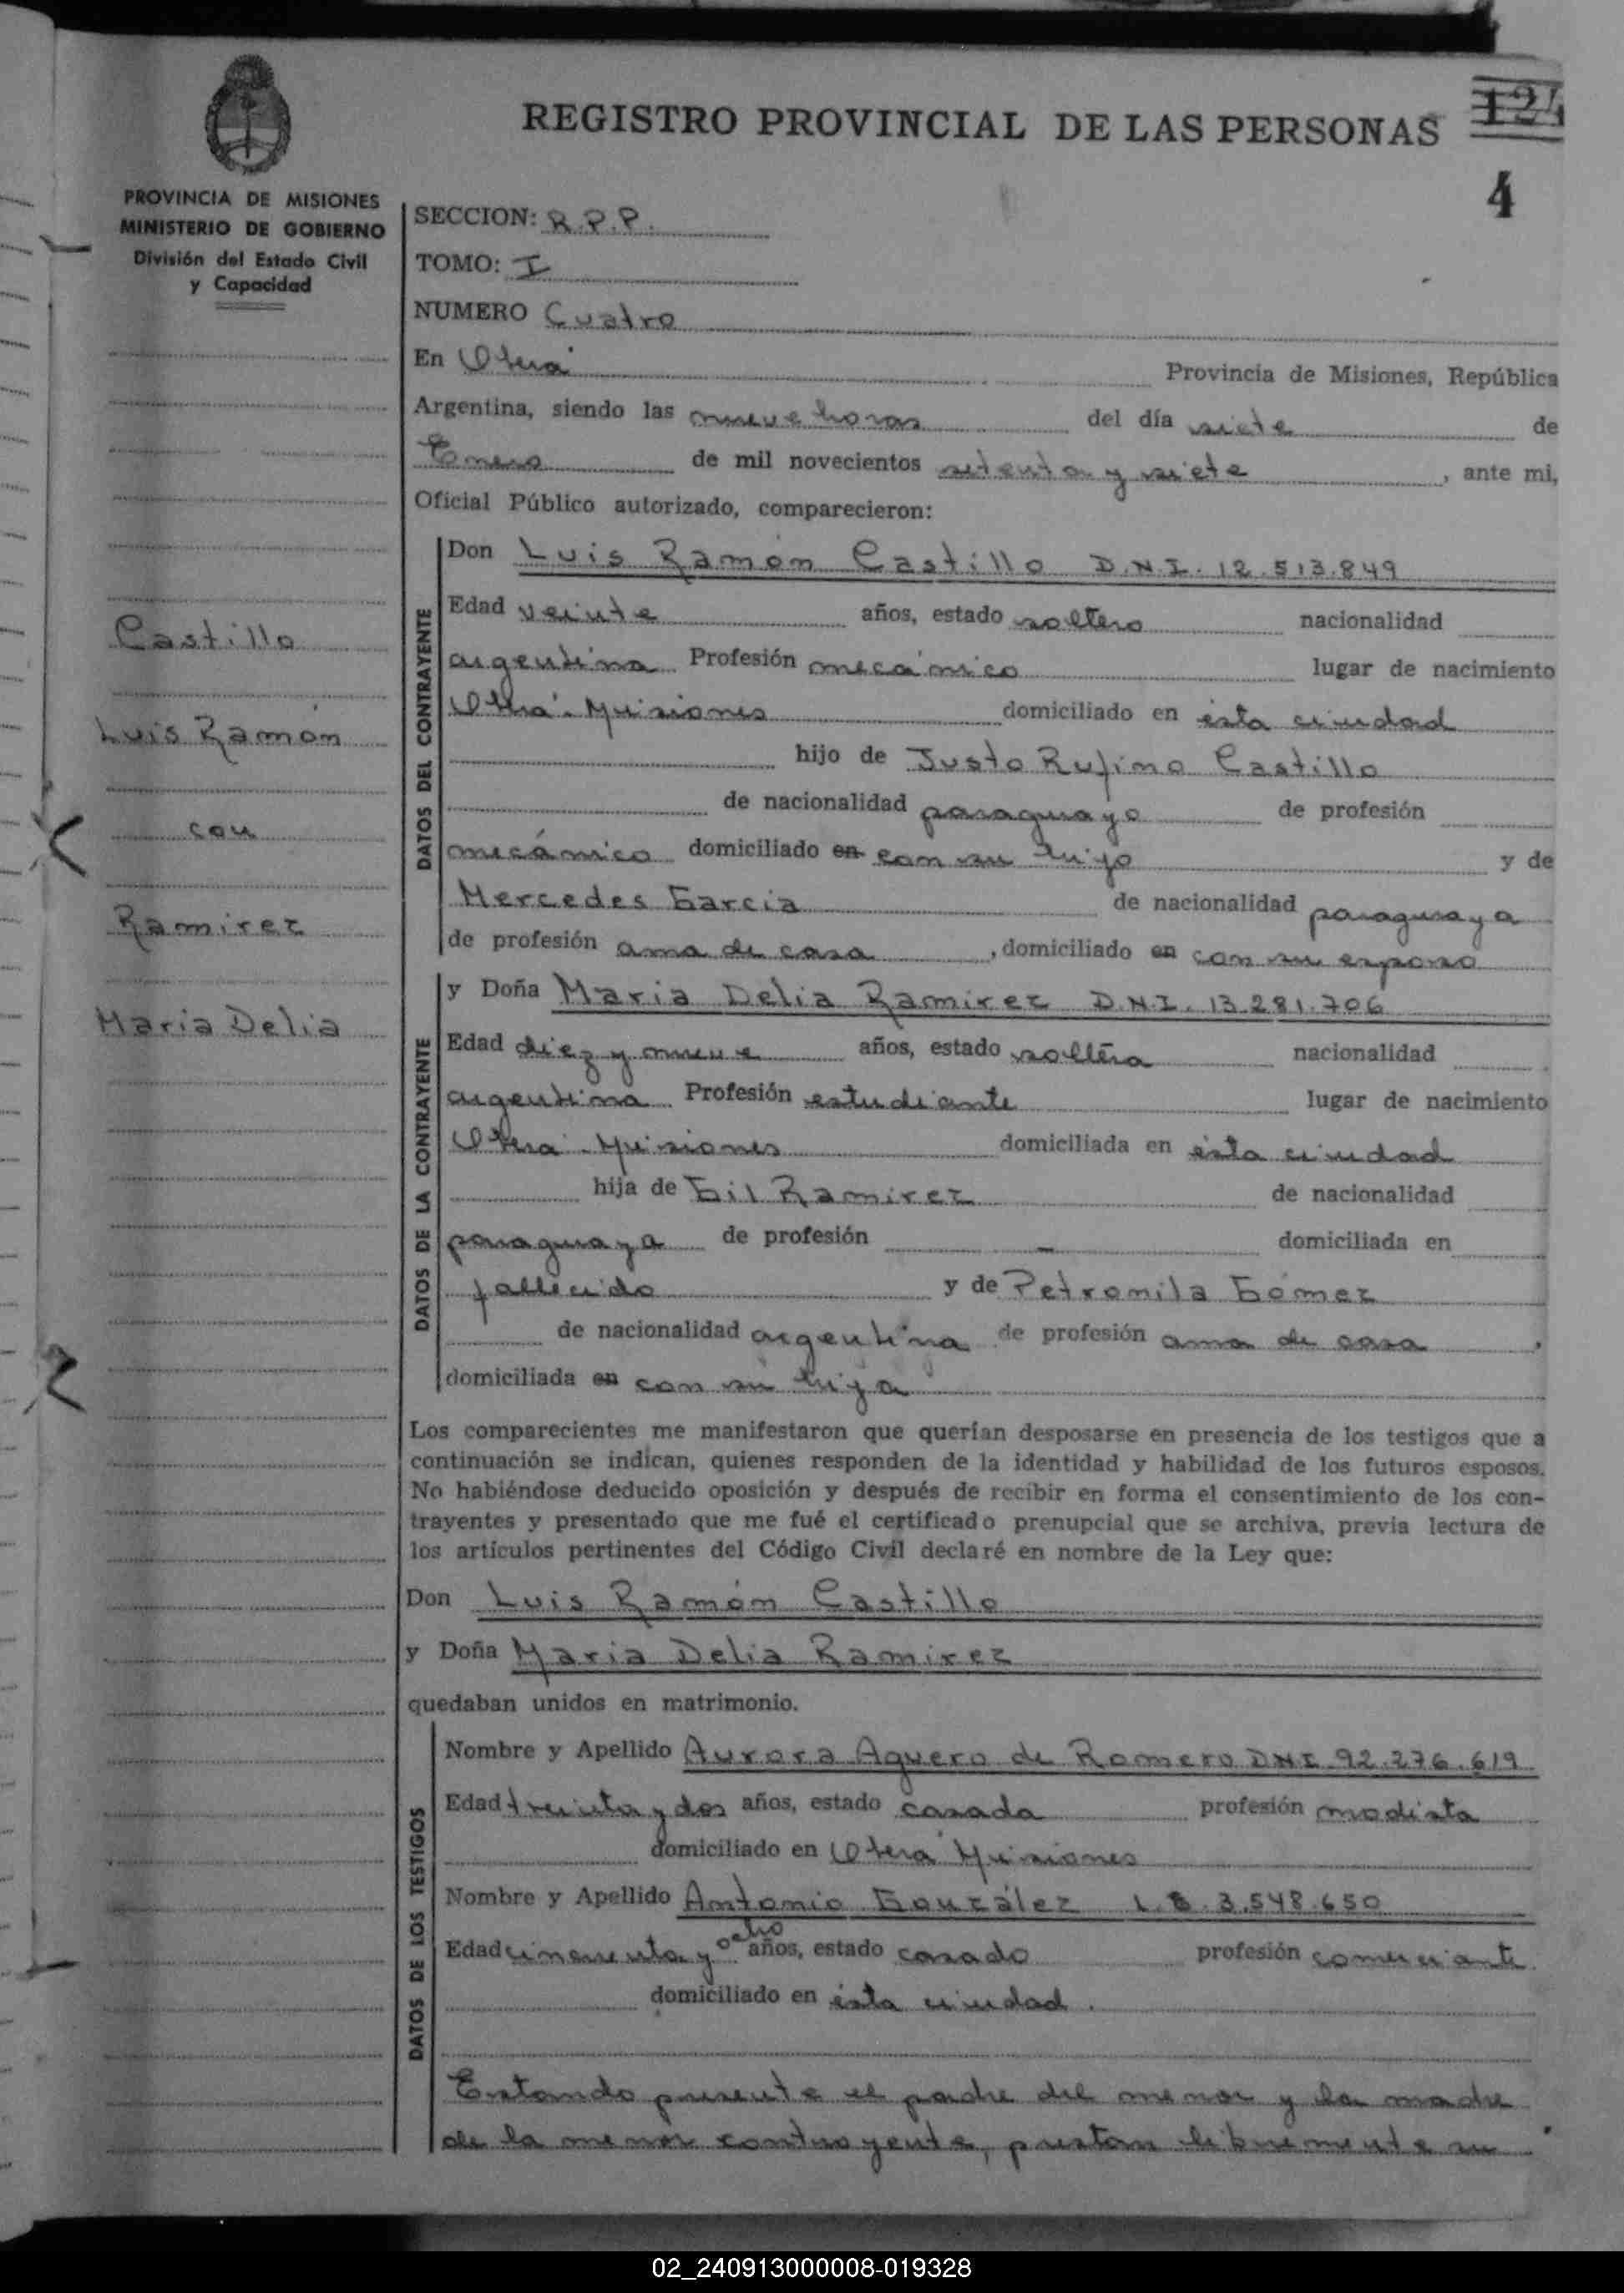 REGISTRO PROVINCIAL DE LAS PERSONAS
124
4
PROVINCIA DE MISIONES
MINISTERIO DE GOBIERNO
División del Estado Civil
y Capacidad
Castillo
Luis Ramón
con
Ramirez
Maria Delia
SECCION: R.P.P.
TOMO: I
NUMERO Cuatro
En Oberá Provincia de Misiones, República
Argentina, siendo las nueve horas del día siete de
Enero de mil novecientos setenta y siete, ante mi,
Oficial Público autorizado, comparecieron:
DATOS DEL CONTRAYENTE
Don Luis Ramón Castillo D.N.I. 12.513.849
Edad veinte años, estado soltero nacionalidad
argentina Profesión mecánico lugar de nacimiento
Oberá - Misiones domiciliado en ésta ciudad
hijo de Justo Rufino Castillo
de nacionalidad paraguayo de profesión
mecánico domiciliado en con su hijo y de
Mercedes Garcia de nacionalidad paraguaya
de profesión ama de casa, domiciliado en con su esposo
DATOS DE LA CONTRAYENTE
y Doña Maria Delia Ramirez D.N.I. 13.281.706
Edad diez y nueve años, estado soltera nacionalidad
argentina Profesión estudiante lugar de nacimiento
Oberá - Misiones domiciliada en ésta ciudad
hija de Gil Ramirez de nacionalidad
paraguaya de profesión - domiciliada en
fallecido y de Petromila Gómez
de nacionalidad argentina de profesión ama de casa,
domiciliada en con su hija
Los comparecientes me manifestaron que querían desposarse en presencia de los testigos que a
continuación se indican, quienes responden de la identidad y habilidad de los futuros esposos.
No habiéndose deducido oposición y después de recibir en forma el consentimiento de los con-
trayentes y presentado que me fué el certificado prenupcial que se archiva, previa lectura de
los artículos pertinentes del Código Civil declaré en nombre de la Ley que:
Don Luis Ramón Castillo
y Doña Maria Delia Ramirez
quedaban unidos en matrimonio.
DATOS DE LOS TESTIGOS
Nombre y Apellido Aurora Aguero de Romero DNI 92.276.619
Edad treinta y dos años, estado casada profesión modista
domiciliado en Oberá Misiones
Nombre y Apellido Antonio González L.E. 3.548.650
Edad cincuenta y ocho años, estado casado profesión comerciante
domiciliado en ésta ciudad.
Estando presente el padre del menor y la madre
de la menor contrayente, prestan libremente su
02_240913000008-019328